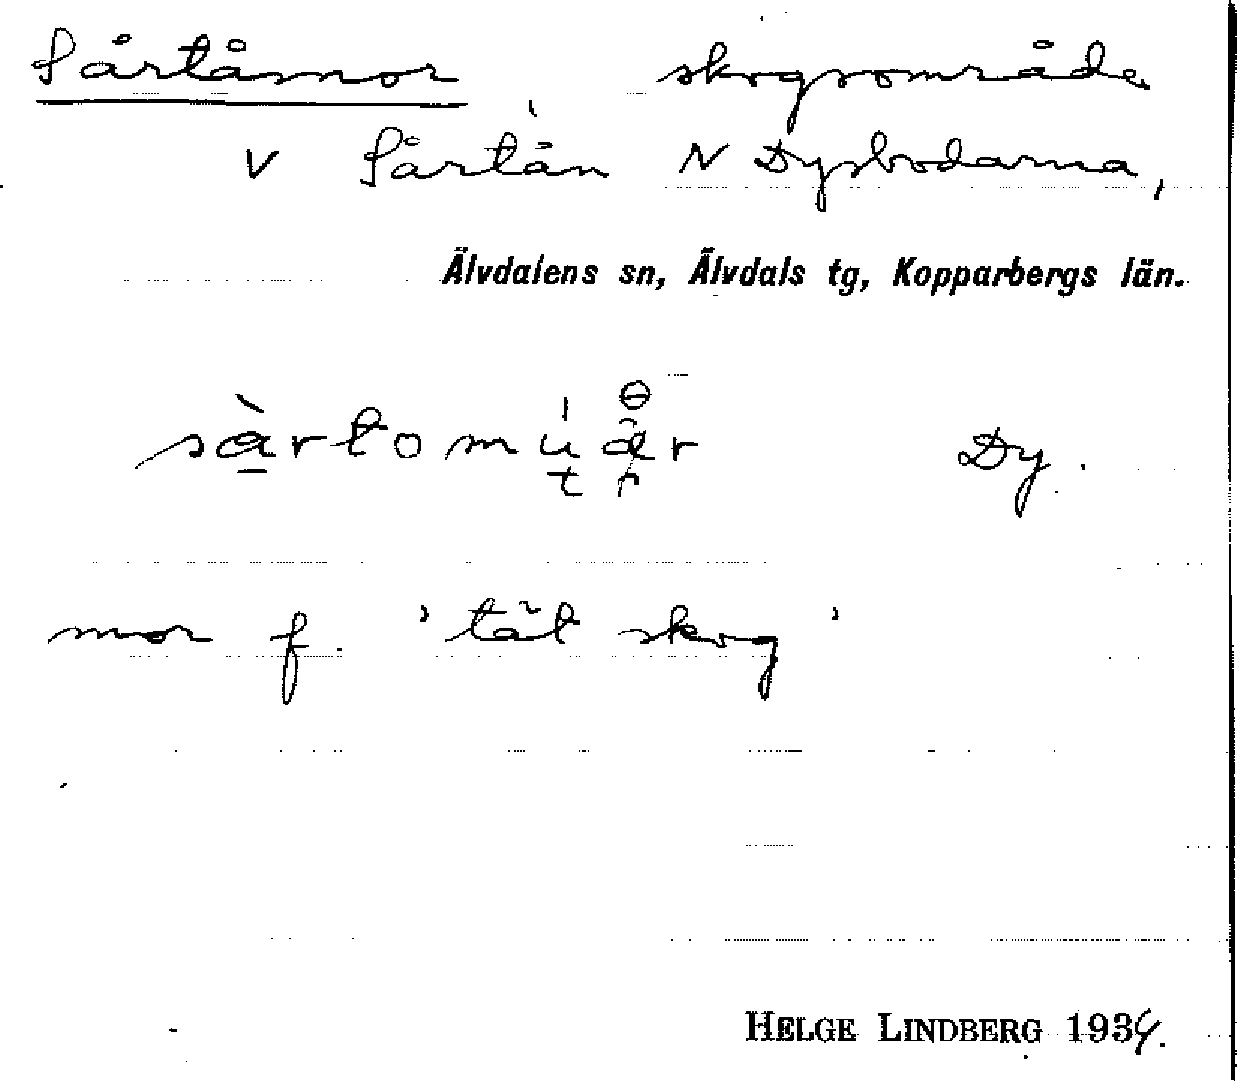 Sårtåmor skogsområde
V Sårtån N Dysbodarna,
Älvdalens sn, Älvdals tg, Kopparbergs län.
Dy.
mor f. 'tät skog'
HELGE LINDBERG 1934.